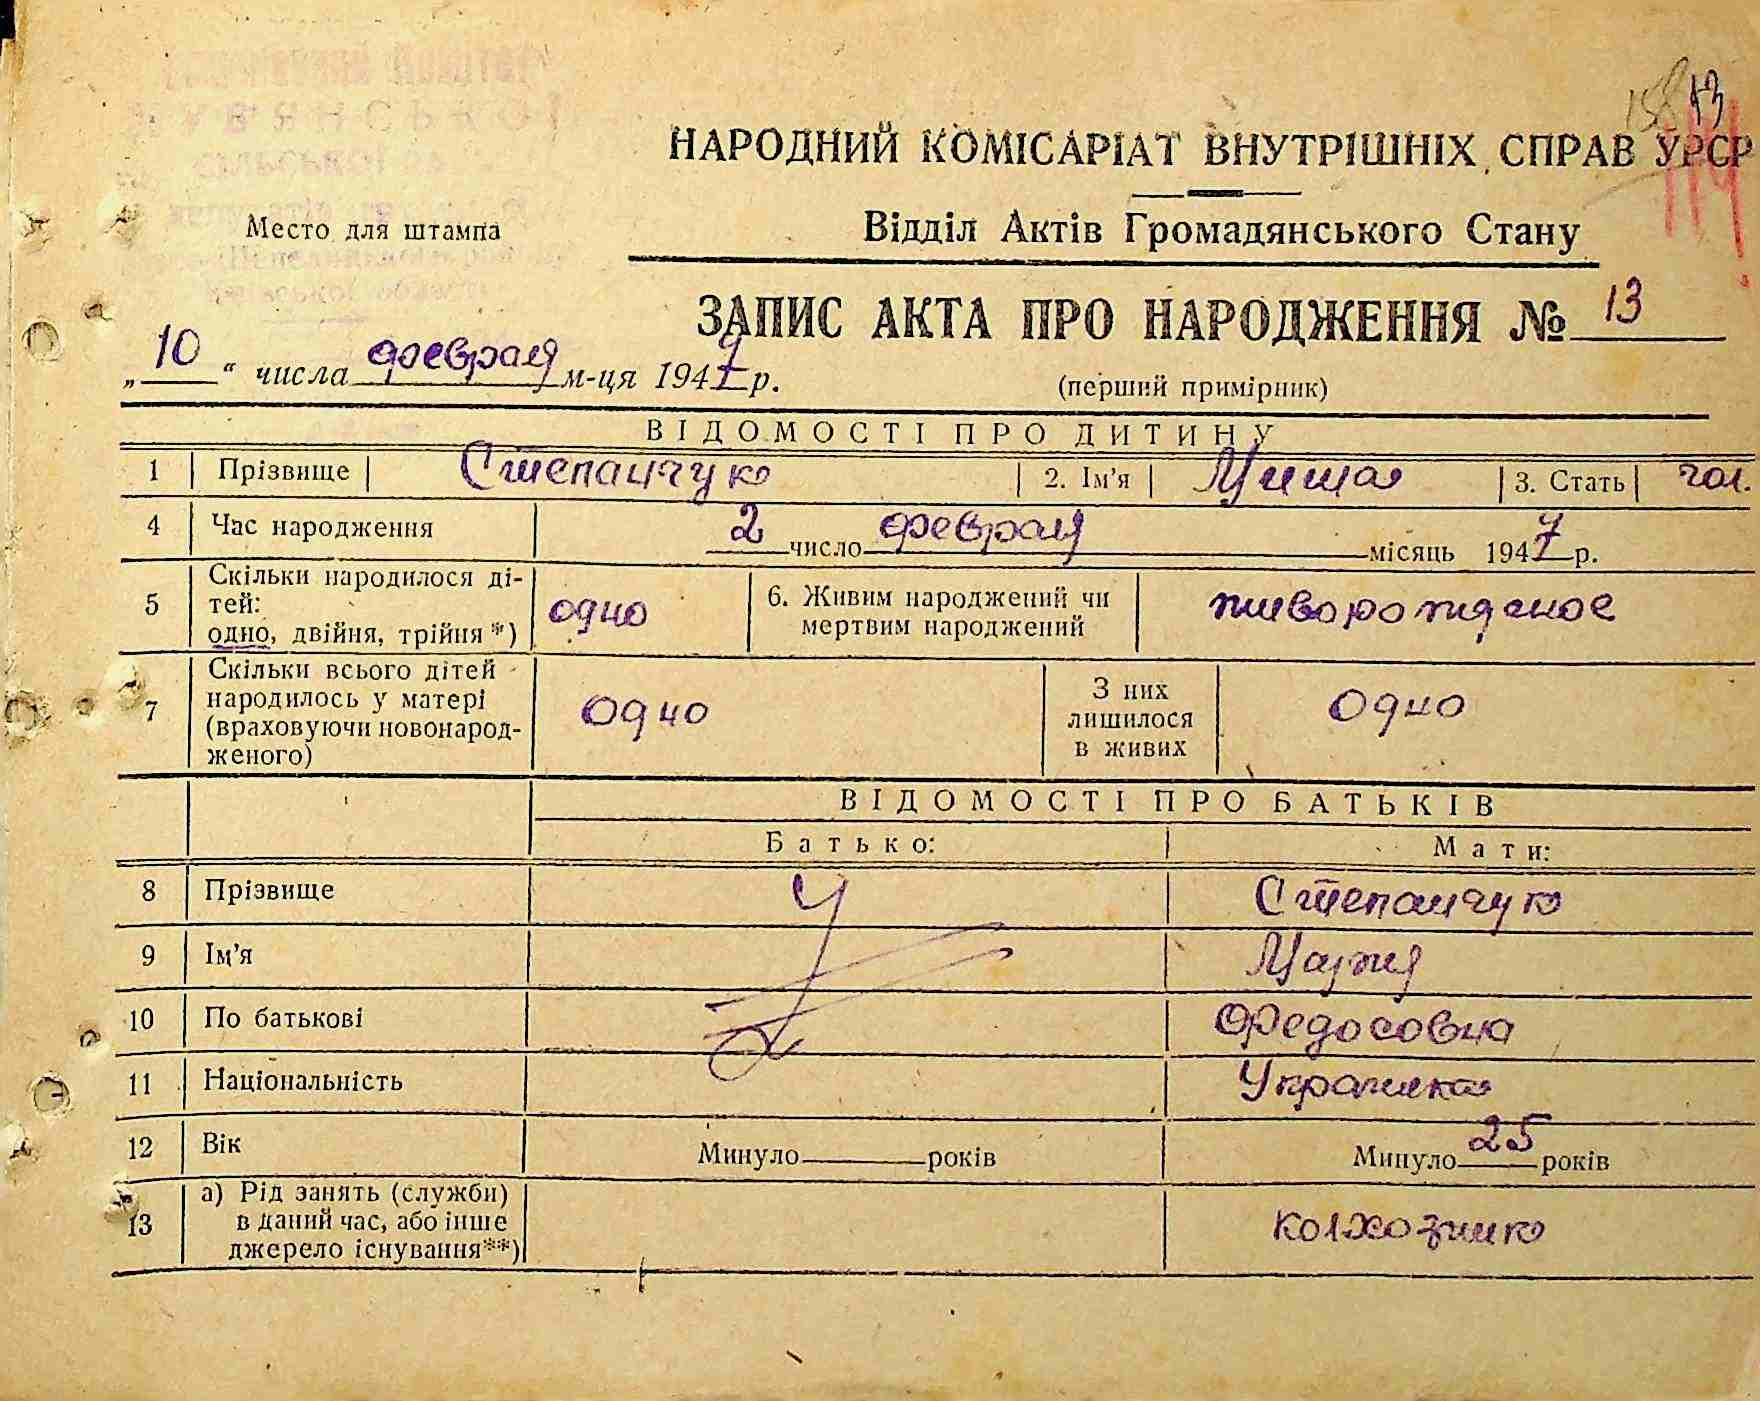 158 13
НАРОДНИЙ КОМІСАРІАТ ВНУТРІШНІХ СПРАВ УРСР
Место для штампа
Відділ Актів Громадянського Стану
ЗАПИС АКТА ПРО НАРОДЖЕННЯ № 13
„ 10 “ числа февраля м-ця 1947 р.
(перший примірник)
ВІДОМОСТІ ПРО ДИТИНУ
1 Прізвище Степанчук 2. Ім'я Миша 3. Стать чол.
4 Час народження 2 число февраля місяць 1947 р.
5 Скільки народилося ді-
тей:
одно, двійня, трійня *) одно 6. Живим народжений чи
мертвим народжений живорожденое
7 Скільки всього дітей
народилось у матері
(враховуючи новонарод-
женого) одно З них
лишилося
в живих одно
ВІДОМОСТІ ПРО БАТЬКІВ
Батько: Мати:
8 Прізвище Степанчук
9 Ім'я Мария
10 По батькові Федосовна
11 Національність Украинка
12 Вік Минуло ____ років Минуло 25 років
13 а) Рід занять (служби)
в даний час, або інше
джерело існування**) колхозник